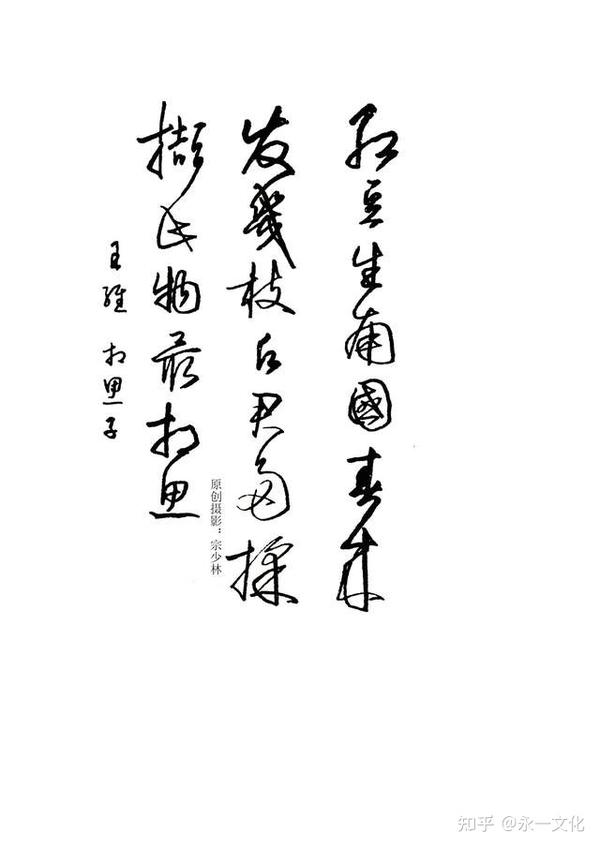 红豆生南國春来
发幾枝愿君多採
撷此物最相思
王维 相思子
原创摄影：宗少林
知乎 @永一文化